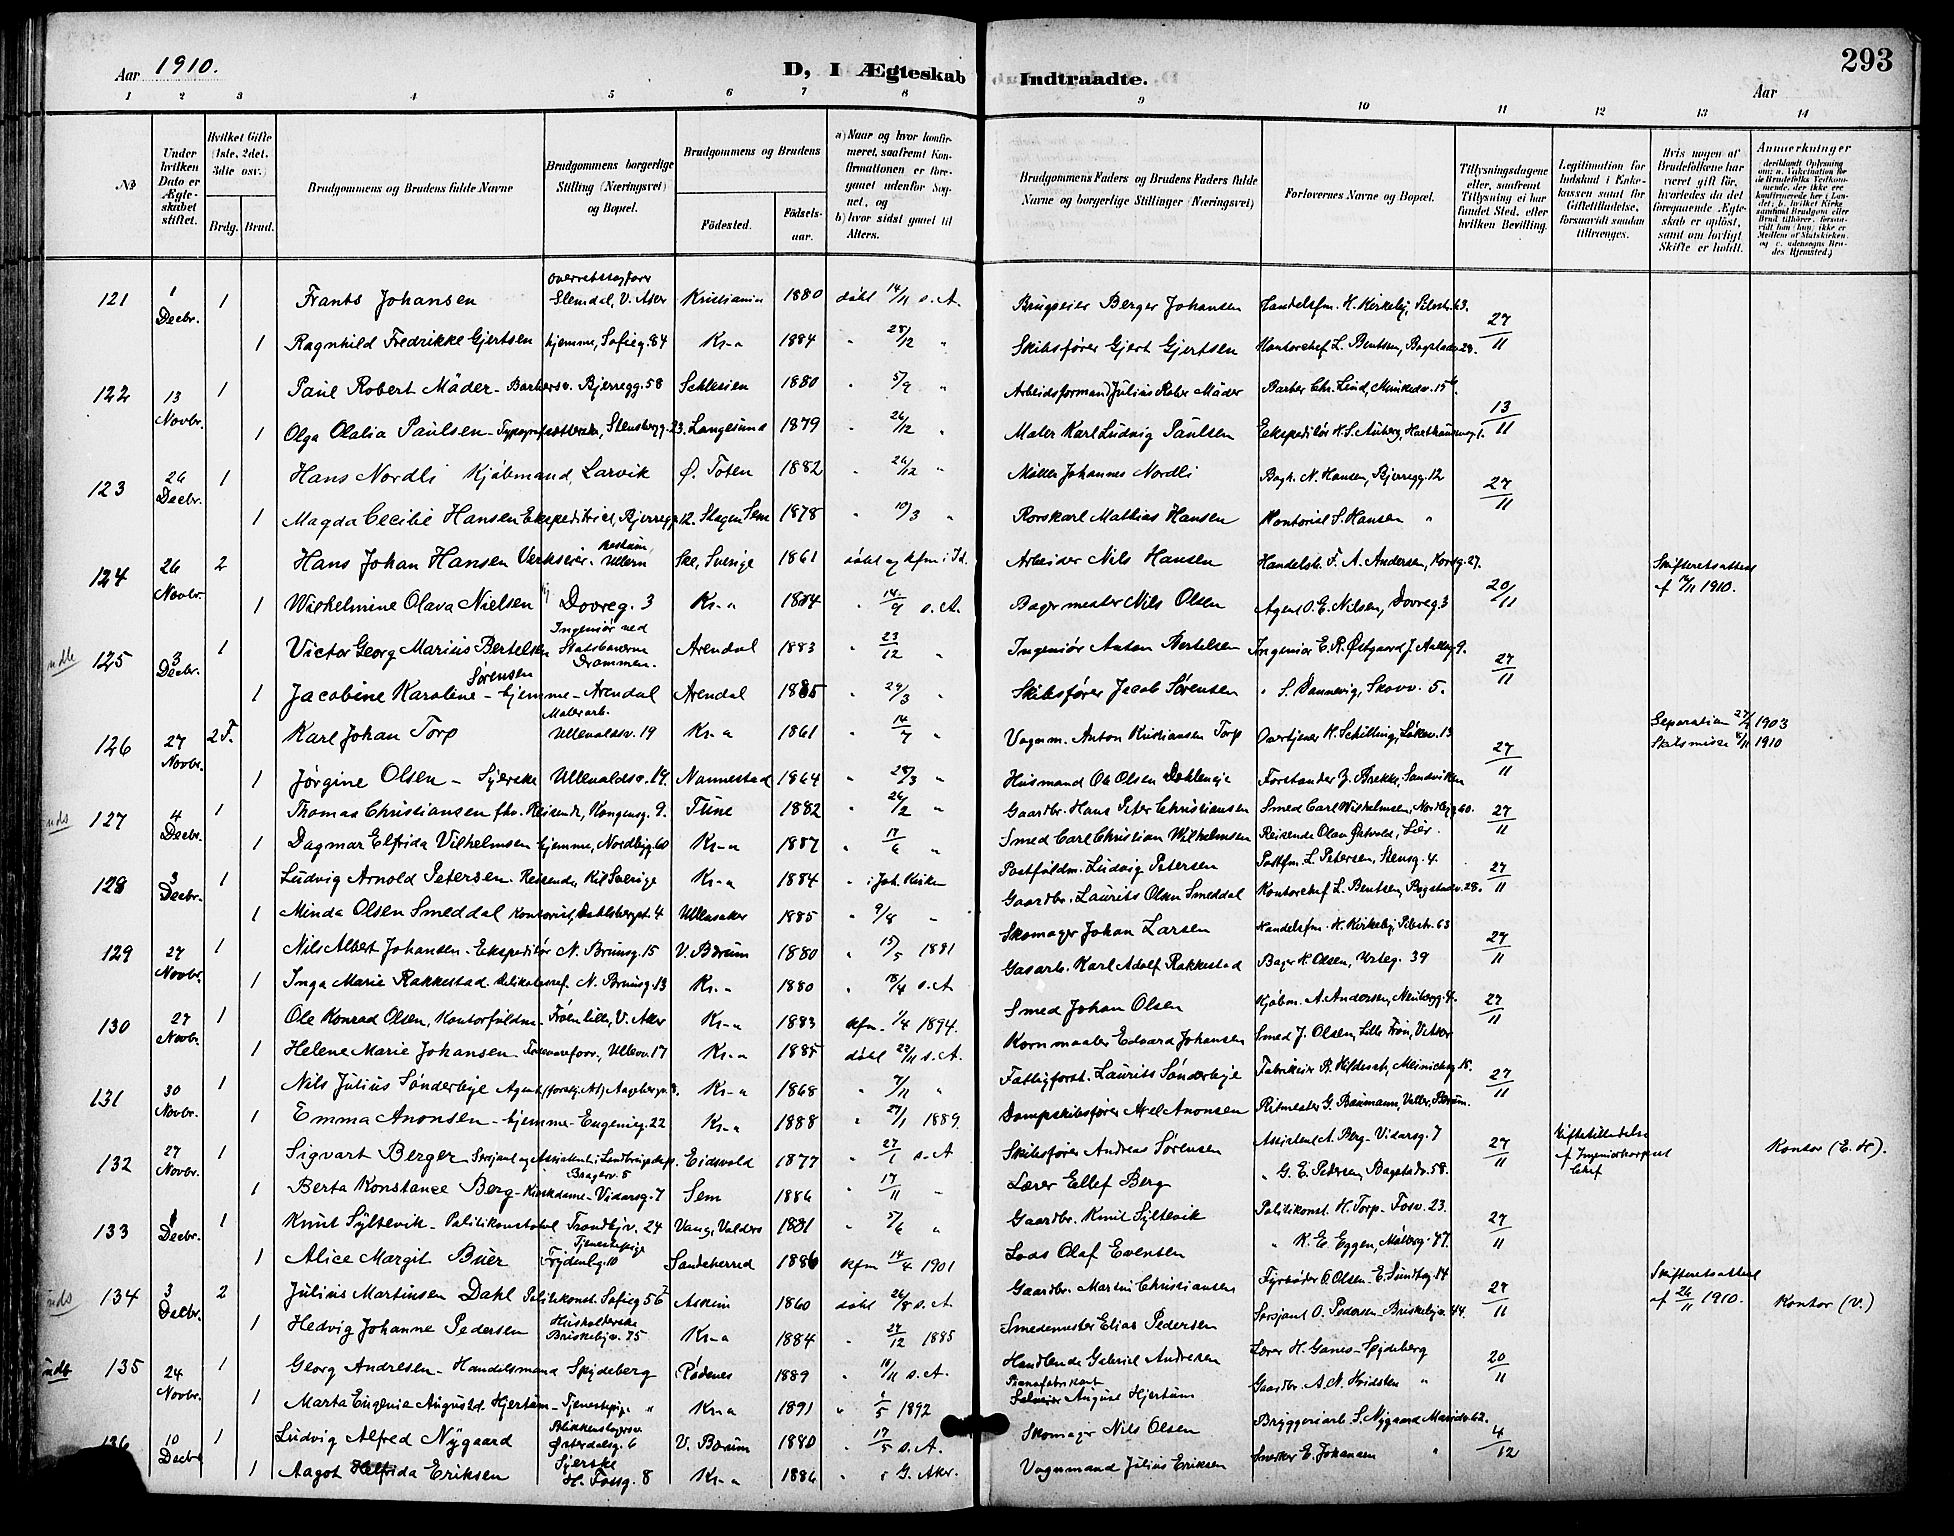 Aar 1910.
D, I Ægteskab Indtraadte.
293
Aar
1 2 3 4 5 6 7 8 9 10 11 12 13 14
No
Under hvilken Dato er Ægteskabet stiftet.
Hvilket Gifte (1ste, 2det, 3die osv.)
Brdg. Brud.
Brudgommens og Brudens fulde Navne
Brudgommens borgerlige Stilling (Næringsvei) og Bopæl.
Brudgommens og Brudens
Födested.
Födselsaar.
a) Naar og hvor konfirmeret, saafremt Konfirmationen er foregaaet udenfor Sognet, og
b) hvor sidst gaaet til Alters.
Brudgommens Faders og Brudens Faders fulde Navne og borgerlige Stillinger (Næringsvei)
Forlovernes Navne og Bopæl.
Tillysningsdagene eller, saafremt Tillysning ei har fundet Sted, efter hvilken Bevilling.
Legitimation for Indskud i Enkekassen samt for Giftetilladelse, forsaavidt saadan tiltrænges.
Hvis nogen af Brudefolkene har været gift før, hvorledes da det foregaaende Ægteskab er opløst, samt om lovligt Skifte er holdt.
Anmerkninger
121 1 Decbr. 1 Frants Johansen Slemdal, V. Aker Kristiania 1880 døbt 14/11 s. A. Brugseier Berger Johansen Handelsfm. H. Kirkeby, Pilestr. 63. 27/11
1 Ragnhild Fredrikke Gjertsen hjemme, Sofieg. 84 Kr-a 1884 " 28/12 " Skibsfører Gjert Gjertsen Kontorchef L. Bentsen, Bogstadv. 28.
122 13 Novbr. 1 Paul Robert Mäder - Barbersv. Bjerregg. 58 Schlesien 1880 " 5/9 " Arbeidsformand Julius Mäder Barber Chr. Lind, 13/11
1 Olga Olalia Paulsen - Stensbergg. 23. Langesund 1879 " 26/12 " Maler Karl Ludvig Paulsen Ekspeditør
123 26 Decbr. 1 Hans Nordli Kjøbmand, Larvik Ø. Toten 1882 " 26/12 " Møller Johannes Nordli Bagh. N. Hansen, Bjerregg. 12 27/11
1 Magda Cecilie Hansen Ekspeditrice, Bjerregg. 12. Slagen Sem 1878 " 10/3 " Rorskarl Mathias Hansen Kontorist S. Hansen "
124 26 Novbr. 2 Hans Johan Hansen Verkseier. Ullern Ske, Sverige 1861 døbt og kfm i Arbeider Nils Hansen Handelsb. F. A. Andersen, Nordg. 27. 20/11 Skifteretsattest af 1910.
1 Wilhelmine Olava Nielsen Dovreg. 3 Kr-a 1884 " 14/9 s. A. Bagermester Nils Olsen Agent O. E. Nilsen, Dovreg. 3
125 3 Decbr. 1 Victor Georg Marius Bertelsen Ingeniør ved Statsbanerne Drammen. Arendal 1883 " 23/12 " Ingeniør Anton Bertelsen Ingeniør E. R. Østgaard 27/11
1 Jacobine Karoline Sørensen - hjemme - Arendal Arendal 1885 " 29/3 " Skibsfører Jacob Sørensen " S. Dannevig, Skovv. 5.
126 27 Novbr. 2 F. Karl Johan Torp Malerarb. Ullevaldsv. 19 Kr-a 1861 " 14/7 " Vognm. Anton Kristiansen Torp Overtjener K. Schilling, Løkov. 13 27/11 Separation 1903 Skilsmisse 1910
1 Jørgine Olsen - Syerske Ullevaldsv. 19. Nannestad 1864 " 28/3 " Husmand Ole Olsen Forstander Brekke, Sandviken
127 4 Decbr. 1 Thomas Christiansen fhv. Reisende, Kongensg. 9. Tune 1882 " 26/2 " Gaardbr. Hans Peter Christiansen Smed Carl Wilhelmsen, Nordbyg. 60. 27/11
1 Dagmar Elfrida Vilhelmsen hjemme, Nordbyg. 60 Kr-a 1887 " 17/6 " Smed Carl Christian Wilhelmsen Reisende Olav Østvold, Lier.
128 3 Decbr. 1 Ludvig Arnold Petersen. Reisende, Kil Sverige Kr-a 1884 " i Joh. Kirken Postfuldm. Ludvig Petersen Postfm. L. Petersen, Stensg. 4. 27/11
1 Minda Olsen Smeddal Kontorist, Dahlsbergst. 4 Ullensaker 1885 " 9/8 " Gaardbr. Laurits Olsen Smeddal Kontorchef L. Bentsen, Bogstadv. 28.
129 27 Novbr. 1 Nils Albert Johansen - Ekspeditør N. Brunsg. 15 V. Bærum 1880 " 15/5 1881 Skomager Johan Larsen Handelsfm. H. Kirkeby, Pilestr. 63 27/11
1 Inga Marie Rakkestad N. Brunsg. 13 Kr-a 1880 " 18/4 s. A Gasarb. Karl Adolf Rakkestad Bager K. Olsen, Urteg. 39
130 27 Novbr. 1 Ole Konrad Olsen, Kontorfuldm. Frøen lille, V. Aker Kr-a 1883 kfm. 1/4 1894. Smed Johan Olsen Kjøbm. A. Andersen, Neubergg. 4. 27/11
1 Helene Marie Johansen Ullevv. 17 Kr-a 1885 døbt 22/11 s. A. Kornmaaler Edvard Johansen Smed J. Olsen, Lille Frøn, V. Aker
131 30 Novbr. 1 Nils Julius Sønderbye Agent Kr-a 1868 " 7/11 " Fattigforst. Laurits Sønderbye Fabrikeier 27/11
1 Emma Anonsen - hjemme - Eugenieg. 22 Kr-a 1888 " 27/1 1889. Dampskibsfører Axel Anonsen Ritmester G. Baumann, Bærum.
132 27 Novbr. 1 Sigvart Berger Sersjant og Assistent i Landbrugsdep. Eidsvold 1877 " 27/1 s. A Skibsfører Andreas Sørensen Assistent A. Berg - Vidarsg. 7 27/11 Giftetilladelse af Ingeniørkorpsets Chef Kontor (E. H).
1 Berta Konstance Berg - Vidarsg. 7 Sem 1886 " 17/11 " Lærer Ellef Berg " G. E. Petersen, Bogstadv. 58.
133 Decbr. 1 Knut Syltevik - Politikonstabel Trondhjv. 24 Vang, Valders 1881 " 5/6 " Gaardbr. Knut Syltevik Politikonst. H. Torp - Fosv. 23. 27/11
1 Alice Margit Buer Tjenestepige Frydenbg. 10 Sandeherred 1886 kfm 14/4 1901 Lods Olaf Evensen " K. E. Eggen, Mølberg. 47.
134 3 Decbr. 2 Julius Martinsen Dahl Politikonst. Sofieg. 56 Askim 1860 døbt 26/8 s. A Gaardbr. Martin Christiansen Fyrbøder O. Olsen - E. Sundtsg. 14 27/11 Skifteretsattest af 26/11 1910. Kontor (V.)
1 Hedvig Johanne Pedersen Husholderske Briskebyv. 75 Kr-a 1884 " 27/12 1885 Smedemester Elias Pedersen Sersjant O. Pedersen - Briskebyv. 44.
135 24 Novbr. 1 Georg Andresen - Handelsmand Spydeberg Rødenes 1889 " 10/11 s. A. Handlende Gabriel Andresen Lærer H. Ganes - Spydeberg 20/11
1 Marta Eugenie Augusta Hjertum - Tjenestepige " Kr-a 1891 " 1/5 1892 Pianofabrikant August Hjertum Gaardbr. A. N. Hvidsten "
136 10 Decbr 1 Ludvig Alfred Nygaard Blikkenslagersv. Østerdalsg. 6 V. Bærum 1880 " 17/5 s. A. Skomager Nils Olsen Bryggeriarb. S. Nygaard Maridv. 62. 4/12
1 Aagot Helfrida Eriksen Syerske H. Fossg. 8 Kr-a 1886 " i G. Aker. Vognmand Julius Eriksen Snekker E. Johansen "